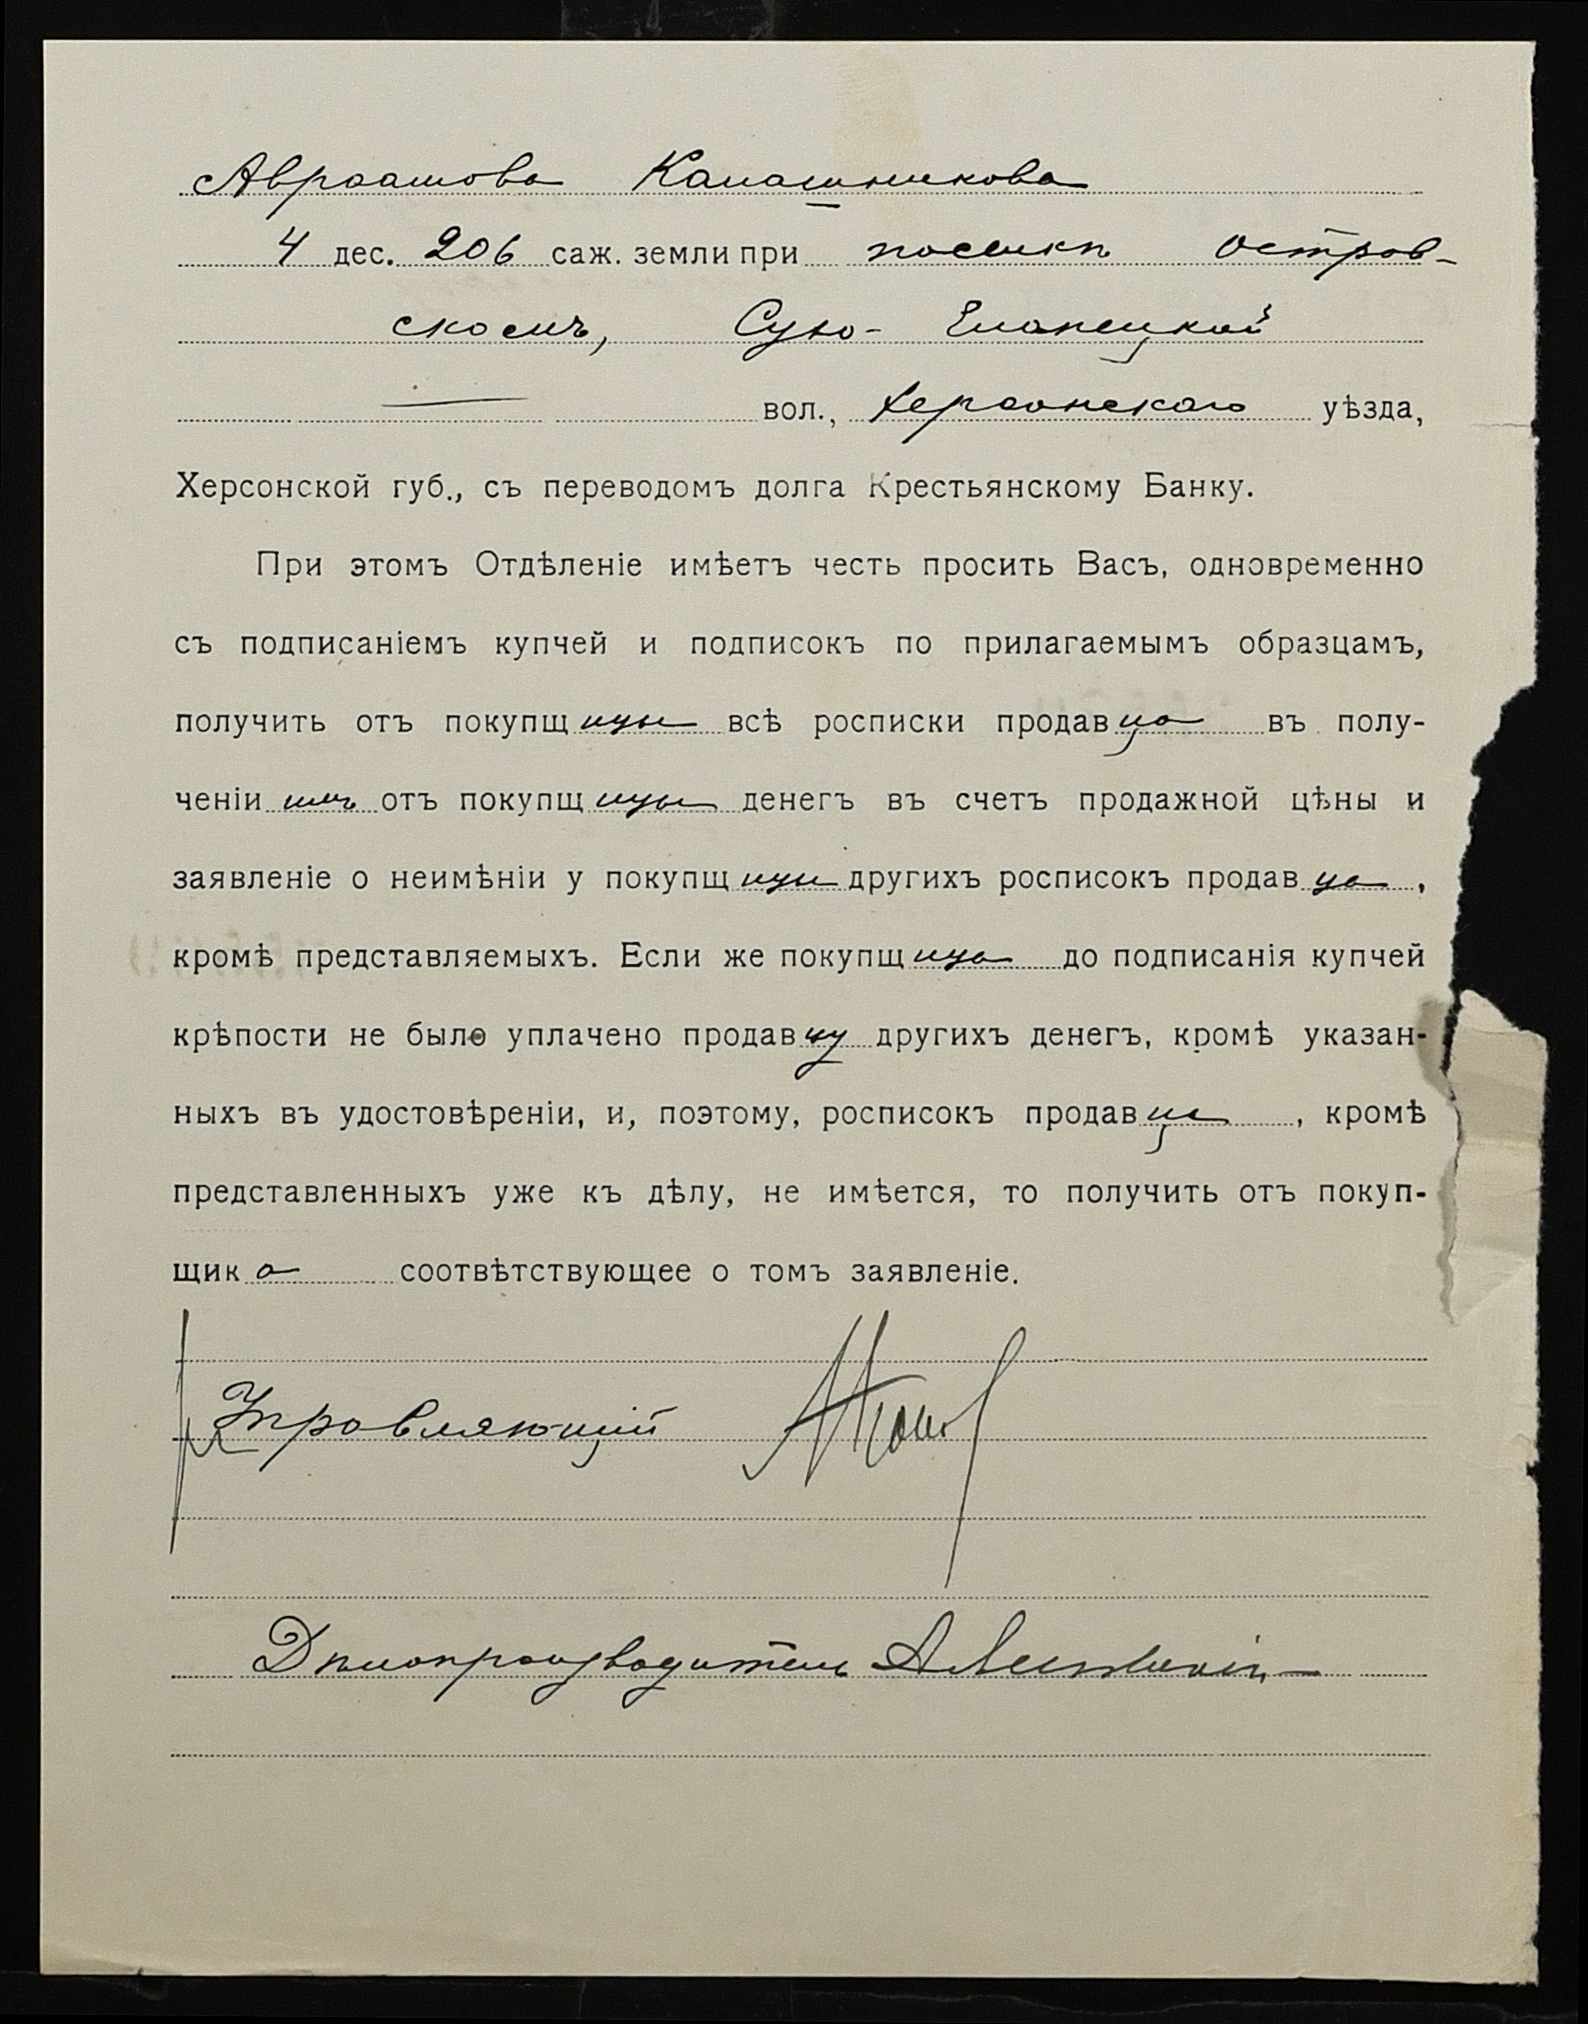 Авраамова Калашникова
4 дес. 206 саж. земли при поселкѣ Остров-
скомъ, Сухо-Еланецкой
вол., Херсонскаго уѣзда,
Херсонской губ., съ переводомъ долга Крестьянскому Банку.
При этомъ Отдѣленіе имѣетъ честь просить Васъ, одновременно
съ подписаніемъ купчей и подписокъ по прилагаемымъ образцамъ,
получить отъ покупщицы всѣ росписки продавца въ полу-
ченіи имъ отъ покупщицы денегъ въ счетъ продажной цѣны и
заявленіе о неимѣніи у покупщицы другихъ росписокъ продавца,
кромѣ представляемыхъ. Если же покупщица до подписанія купчей
крѣпости не было уплачено продавцу другихъ денегъ, кромѣ указан-
ныхъ въ удостовѣреніи, и, поэтому, росписокъ продавца, кромѣ
представленныхъ уже къ дѣлу, не имѣется, то получить отъ покуп-
щика соотвѣтствующее о томъ заявленіе.
Управляющій
Дѣлопроизводитель